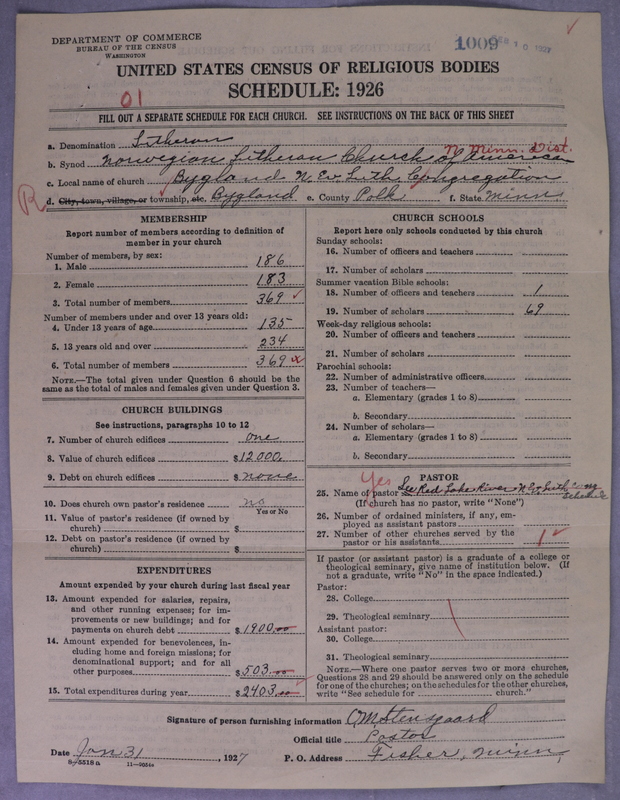 DEPARTMENT OF COMMERCE
BUREAU OF THE CENSUS
WASHINGTON
1009 FEB 10 1927
UNITED STATES CENSUS OF RELIGIOUS BODIES
SCHEDULE: 1926
01
FILL OUT A SEPARATE SCHEDULE FOR EACH CHURCH. SEE INSTRUCTIONS ON THE BACK OF THIS SHEET
a. Denomination Lutheran
N. Minn. Dist.
b. Synod Norwegian Lutheran Church of America
c. Local name of church Bygland N. Ev. Luth. Congregation
R d. City, town, village, or township, etc. Bygland e. County Polk f. State Minn
MEMBERSHIP
Report number of members according to definition of
member in your church
Number of members, by sex:
1. Male 186
2. Female 183
3. Total number of members 369
Number of members under and over 13 years old:
4. Under 13 years of age 135
5. 13 years old and over 234
6. Total number of members 369
NOTE.—The total given under Question 6 should be the
same as the total of males and females given under Question 3.
CHURCH BUILDINGS
See instructions, paragraphs 10 to 12
7. Number of church edifices one
8. Value of church edifices $12000.
9. Debt on church edifices $ none
10. Does church own pastor's residence no
Yes or No
11. Value of pastor's residence (if owned by
church) $
12. Debt on pastor's residence (if owned by
church) $
EXPENDITURES
Amount expended by your church during last fiscal year
13. Amount expended for salaries, repairs,
and other running expenses; for im-
provements or new buildings; and for
payments on church debt $1900.00
14. Amount expended for benevolences, in-
cluding home and foreign missions; for
denominational support; and for all
other purposes $503.00
15. Total expenditures during year $2403.00
CHURCH SCHOOLS
Report here only schools conducted by this church
Sunday schools:
16. Number of officers and teachers
17. Number of scholars
Summer vacation Bible schools:
18. Number of officers and teachers 1
19. Number of scholars 69
Week-day religious schools:
20. Number of officers and teachers
21. Number of scholars
Parochial schools:
22. Number of administrative officers
23. Number of teachers—
a. Elementary (grades 1 to 8)
b. Secondary
24. Number of scholars—
a. Elementary (grades 1 to 8)
b. Secondary
PASTOR
Yes
25. Name of pastor See Red Lake River N. Ev. Luth. Cong
Schedule
(If church has no pastor, write "None")
26. Number of ordained ministers, if any, em-
ployed as assistant pastors
27. Number of other churches served by the
pastor or his assistants 1
If pastor (or assistant pastor) is a graduate of a college or
theological seminary, give name of institution below. (If
not a graduate, write "No" in the space indicated.)
Pastor:
28. College
29. Theological seminary
Assistant pastor:
30. College
31. Theological seminary
NOTE.—Where one pastor serves two or more churches,
Questions 28 and 29 should be answered only on the schedule
for one of the churches; on the schedules for the other churches,
write "See schedule for church."
Signature of person furnishing information O.M. Stensgaard
Official title Pastor
Date Jan 31, 1927 P. O. Address Fisher, Minn,
8-5518a 11-9554